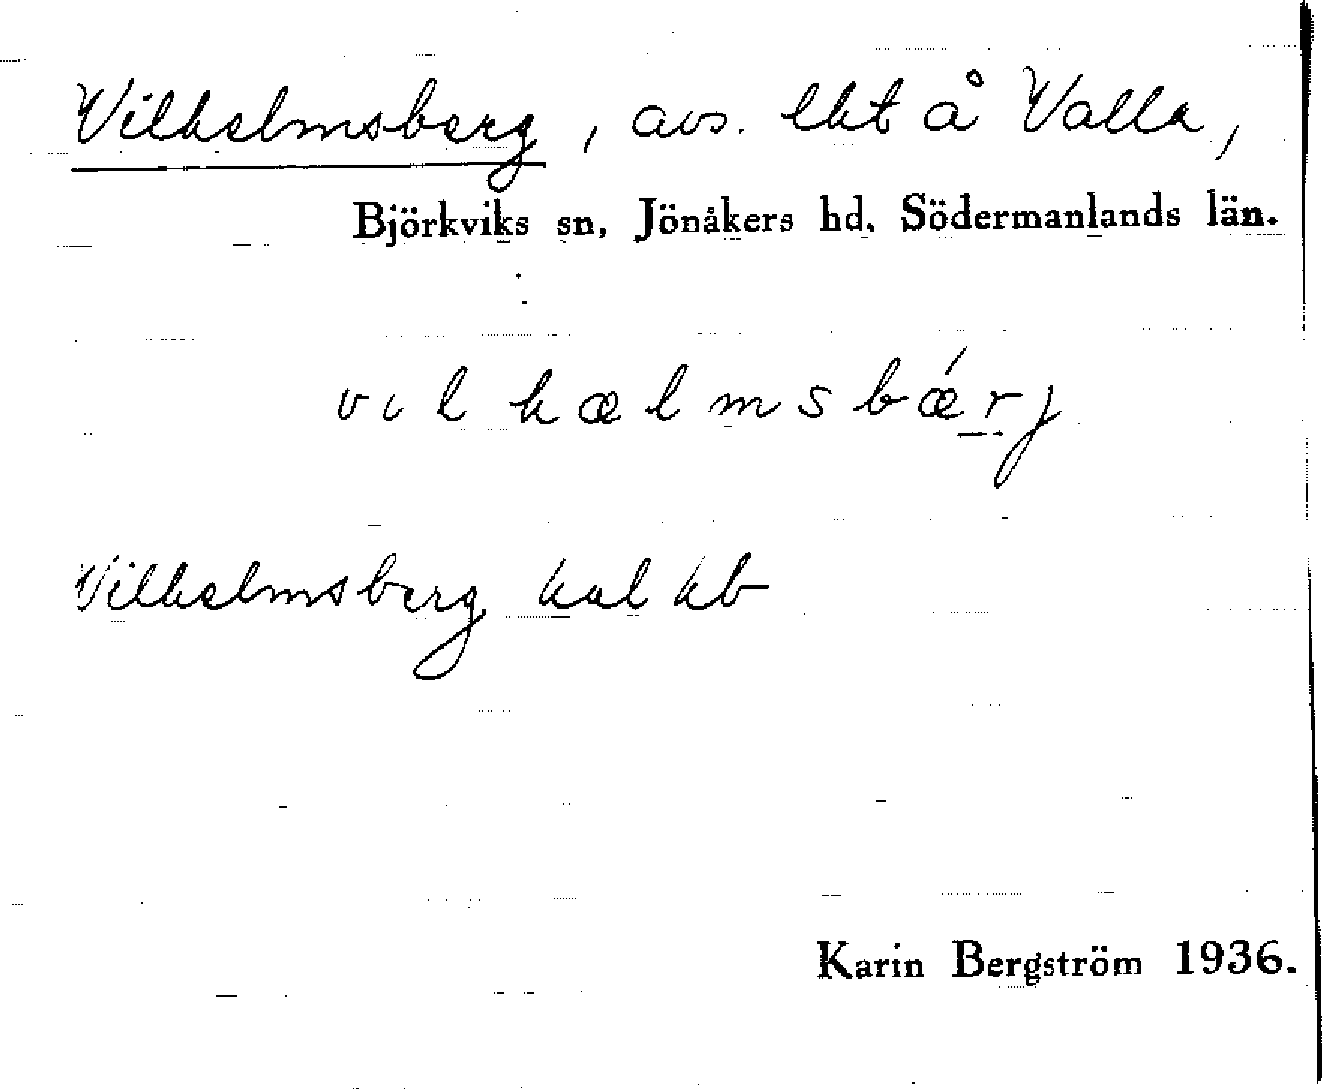 Vilhelmsberg, avs. lht å Valla,
Björkviks sn, Jönåkers hd, Södermanlands län.
vilhælmsbǽrj
Vilhelmsberg hal kb
Karin Bergström 1936.